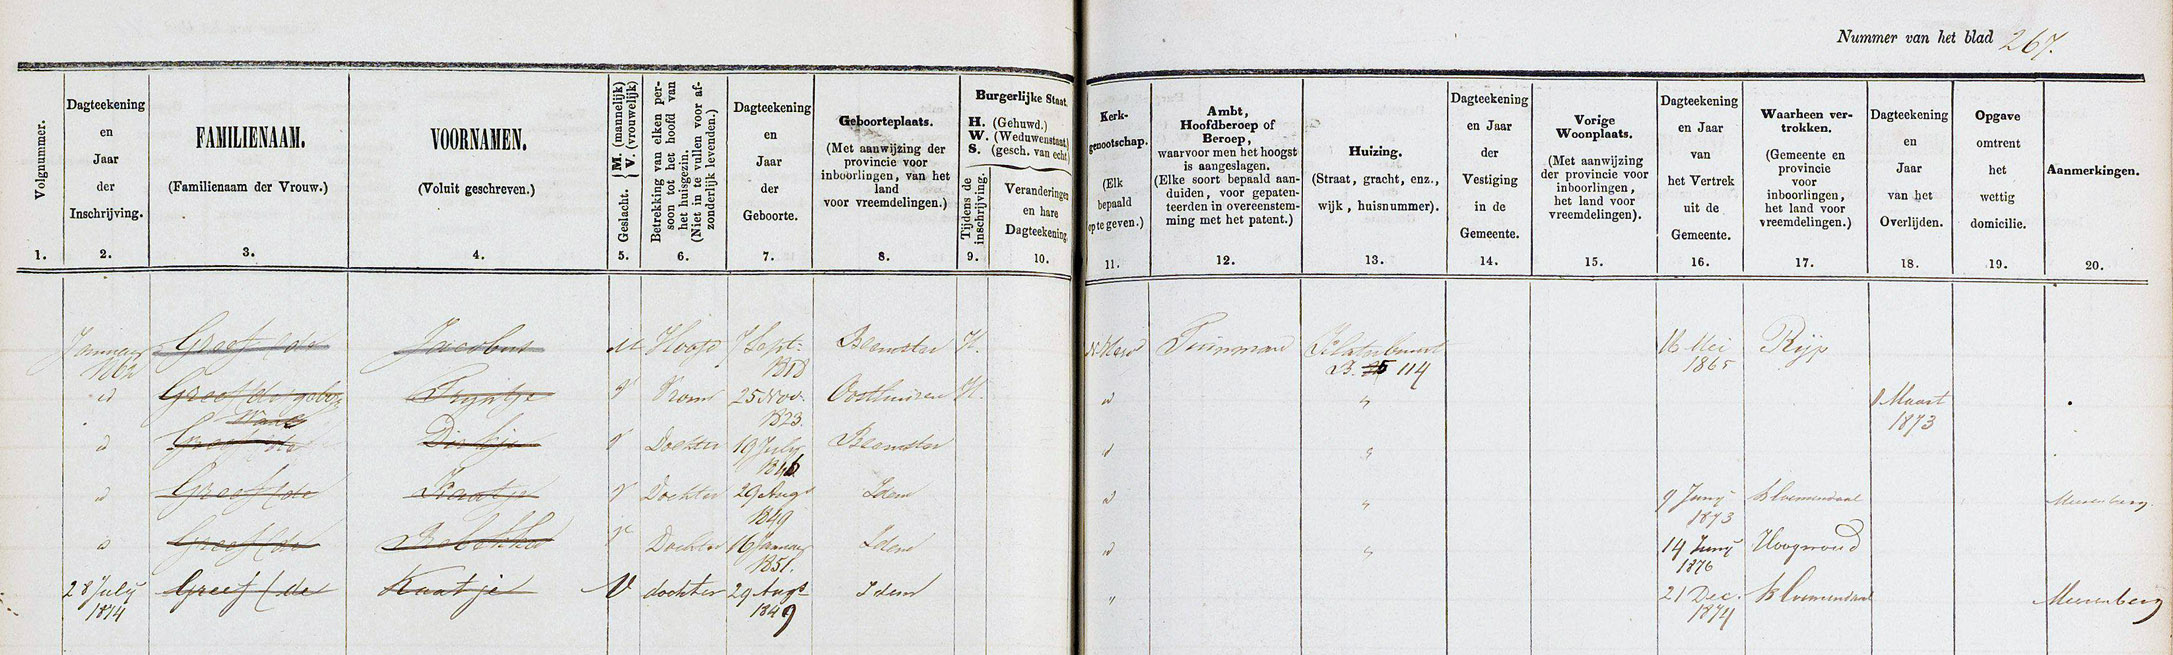 Nummer van het blad 267.
Volgnummer.
1.
Dagteekening
en
Jaar
der
Inschrijving.
2.
FAMILIENAAM.
(Familienaam der Vrouw.)
3.
VOORNAMEN.
(Voluit geschreven.)
4.
Geslacht. { M. (mannelijk)
V. (vrouwelijk)
5.
Betrekking van elken per-
soon tot het hoofd van
het huisgezin.
(Niet in te vullen voor af-
zonderlijk levenden.)
6.
Dagteekening
en
Jaar
der
Geboorte.
7.
Geboorteplaats.
(Met aanwijzing der
provincie voor
inboorlingen, van het
land
voor vreemdelingen.)
8.
Burgerlijke Staat.
H. (Gehuwd.)
W. (Weduwenstaat.)
S. (gesch. van echt)
Tijdens de
inschrijving.
9.
Veranderingen
en hare
Dagteekening.
10.
Kerk-
genootschap.
(Elk
bepaald
op te geven.)
11.
Ambt,
Hoofdberoep of
Beroep,
waarvoor men het hoogst
is aangeslagen.
(Elke soort bepaald aan-
duiden, voor gepaten-
teerden in overeenstem-
ming met het patent.)
12.
Huizing.
(Straat, gracht, enz.,
wijk, huisnummer).
13.
Dagteekening
en Jaar
der
Vestiging
in de
Gemeente.
14.
Vorige
Woonplaats.
(Met aanwijzing
der provincie voor
inboorlingen,
het land voor
vreemdelingen).
15.
Dagteekening
en Jaar
van
het Vertrek
uit de
Gemeente.
16.
Waarheen ver-
trokken.
(Gemeente en
provincie
voor
inboorlingen,
het land voor
vreemdelingen.)
17.
Dagteekening
en
Jaar
van het
Overlijden.
18.
Opgave
omtrent
het
wettig
domicilie.
19.
Aanmerkingen.
20.
Januarij 1862 Greef (de Jacobus M Hoofd 7 Sept. 1818 Beemster H. N. Herv Tuinman B. 114 16 Mei 1865 Rijp
id Greef (de gebor. Trijntje V Vrouw 25 Nov. 1823 Oosthuizen H. id " Maart 1873
id Greef (de Dirkje V Dochter 19 July Beemster id "
id Greef (de Kaatje V Dochter 29 Augs 1849 Idem id " 9 Junij 1873 Bloemendaal Meerenberg
id Greef (de Rebekka V Dochter 16 Januarij 1851. Idem id " 14 Junij 1876 Hoogwoud
28 July 1874 Greef (de Kaatje V dochter 29 Augs 1849 Idem " 21 Dec. 1874 Bloemendaal Meerenberg